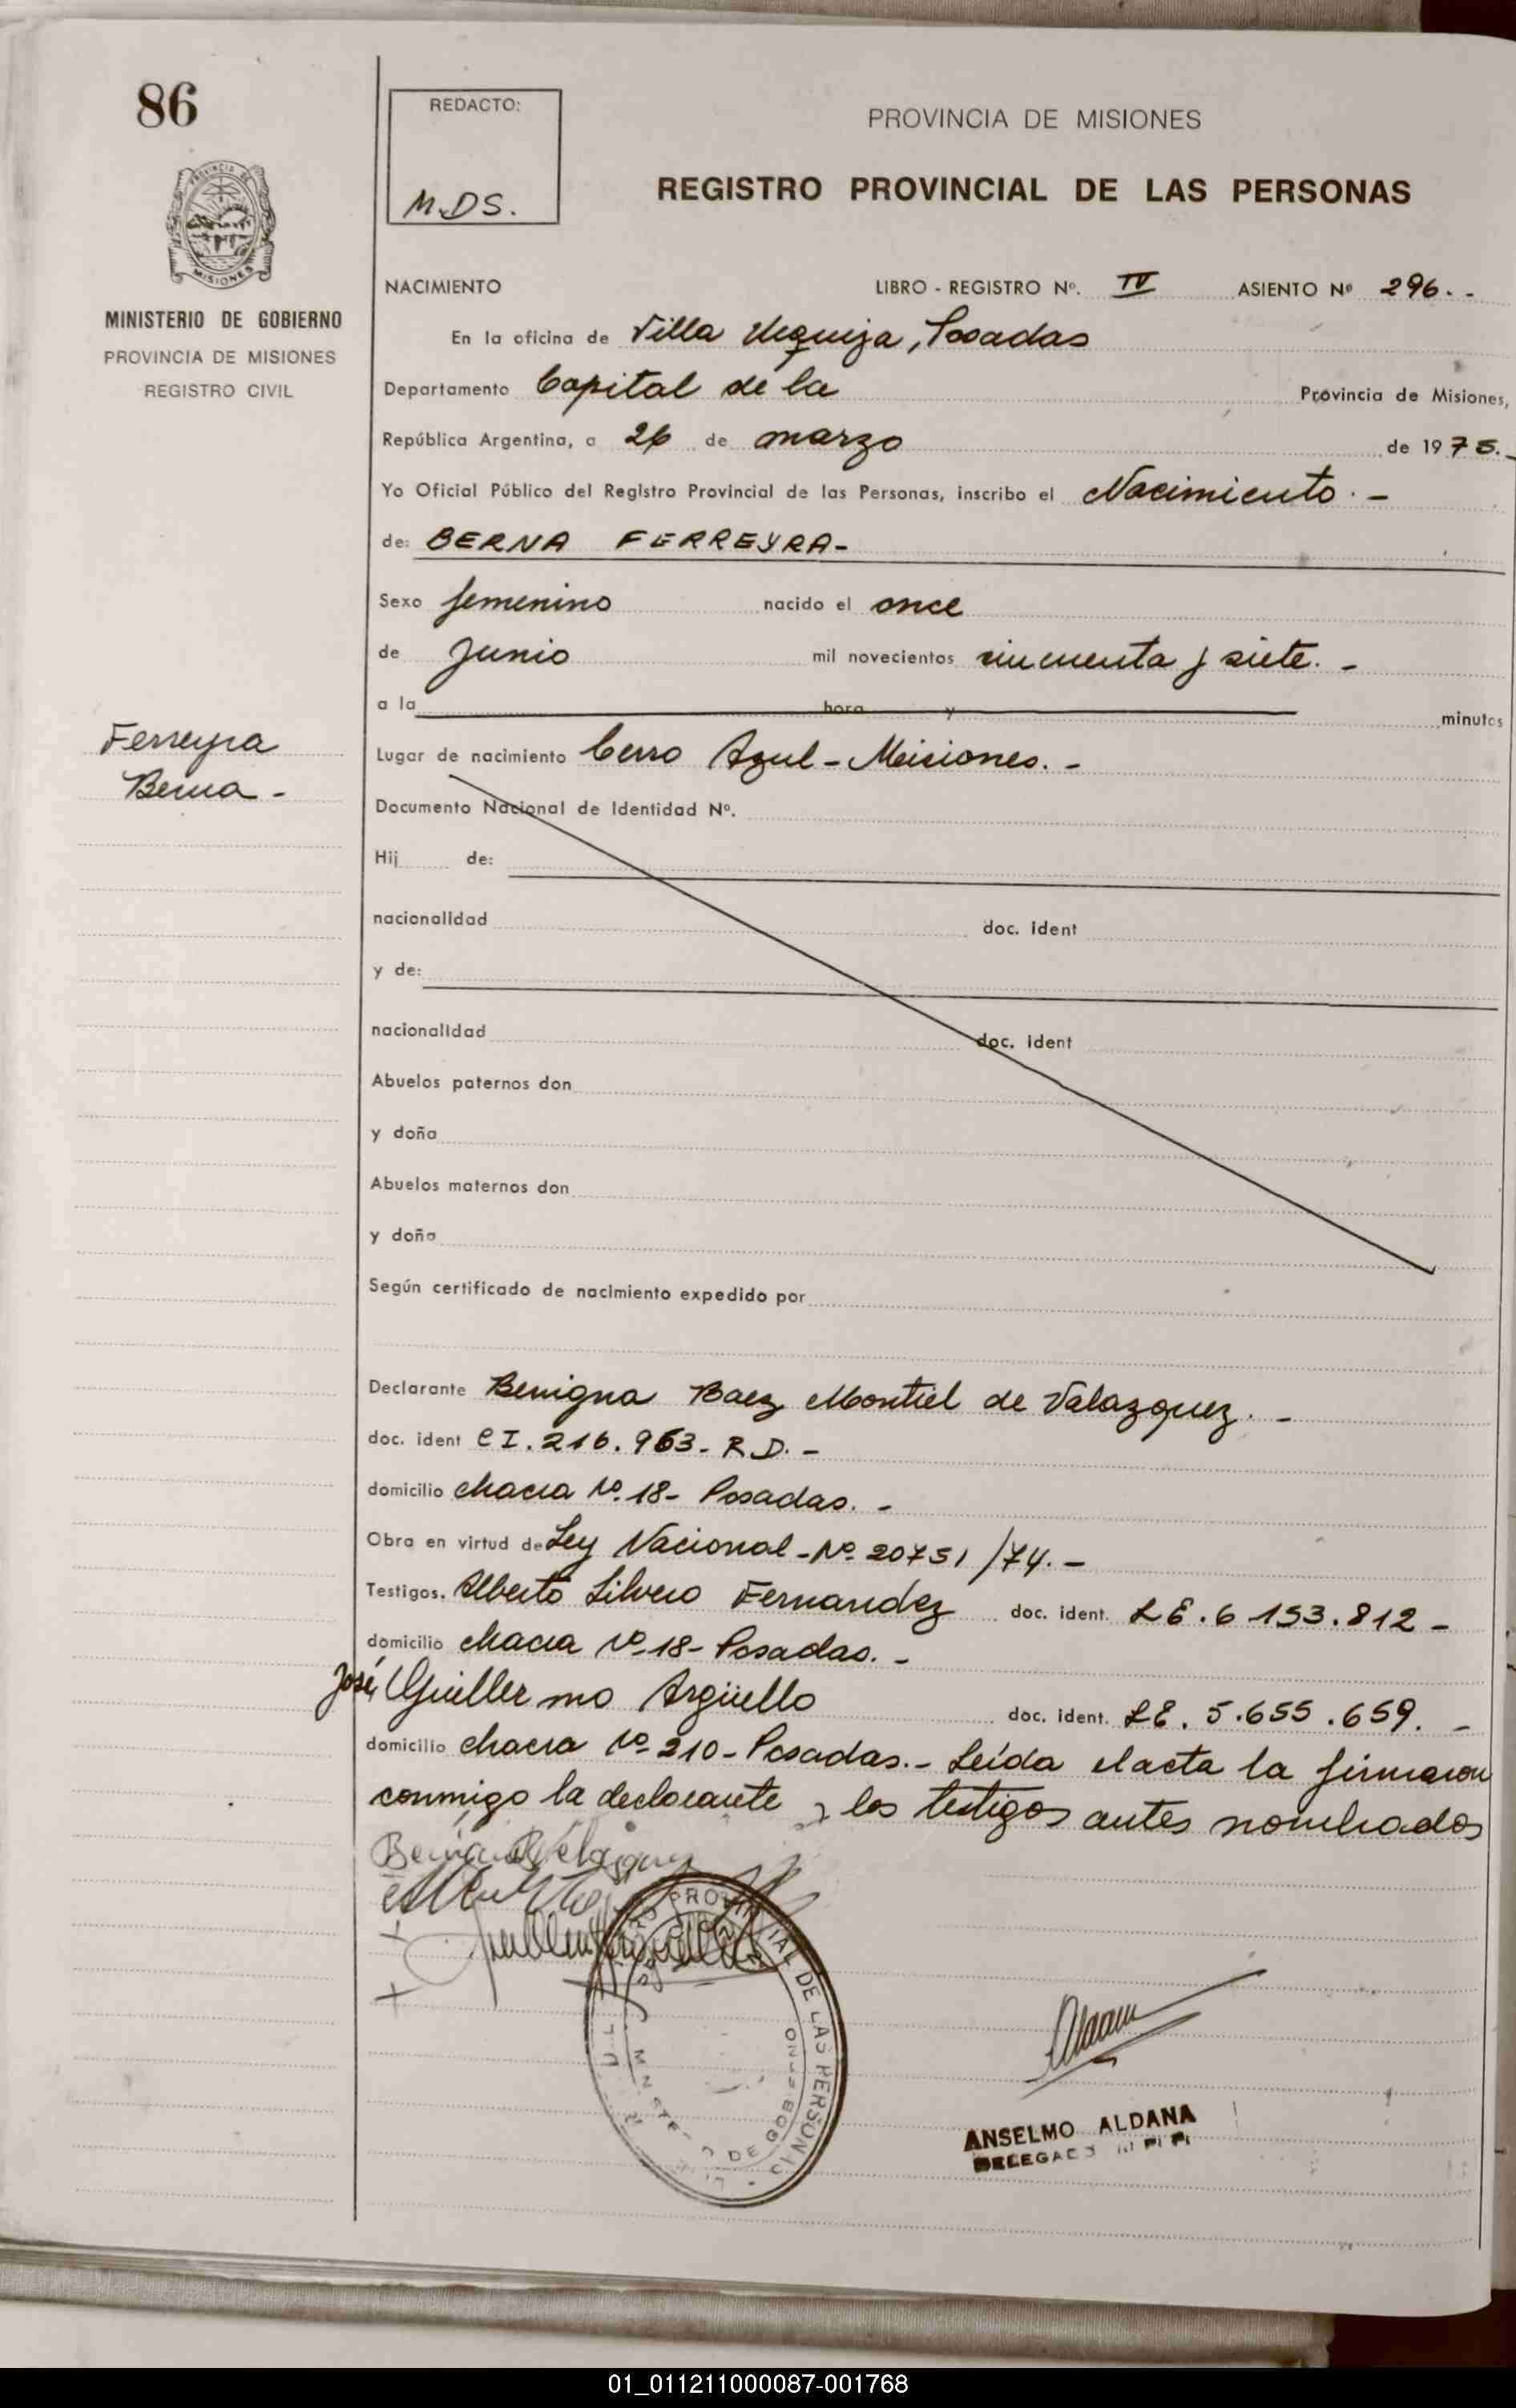 86
REDACTO:
M.DS.
PROVINCIA DE MISIONES
REGISTRO PROVINCIAL DE LAS PERSONAS
PROVINCIA DE
MISIONES
MINISTERIO DE GOBIERNO
PROVINCIA DE MISIONES
REGISTRO CIVIL
NACIMIENTO LIBRO - REGISTRO Nº. IV ASIENTO Nº 296. -
En la oficina de Villa Urquiza, Posadas
Departamento Capital de la Provincia de Misiones,
República Argentina, a 26 de marzo de 1975. -
Yo Oficial Público del Registro Provincial de las Personas, inscribo el Nacimiento. -
de: BERNA FERREYRA-
Sexo femenino nacido el once
de Junio mil novecientos cincuenta y siete. -
a la hora y minutos
Ferreyra
Berna -
Lugar de nacimiento Cerro Azul - Misiones. -
Documento Nacional de Identidad Nº.
Hij de:
nacionalidad doc. ident
y de:
nacionalidad doc. ident
Abuelos paternos don
y doña
Abuelos maternos don
y doña
Según certificado de nacimiento expedido por
Declarante Benigna Baez Montiel de Valazquez. -
doc. ident C I. 216. 963 - R D. -
domicilio chacra Nº. 18 - Posadas. -
Obra en virtud de Ley Nacional - Nº 20751 /74. -
Testigos. Alberto Silvero Fernandez doc. ident. L E. 6 153. 812 -
domicilio chacra Nº 18 - Posadas. -
José Guillermo Argüello doc. ident. L E. 5.655 .659. -
domicilio chacra Nº 210 - Posadas. - Leída el acta la firmaron
conmigo la declarante y los testigos antes nombrados
PROVINCIAL DE LAS PERSONAS
DE GOBIERNO
ANSELMO ALDANA
DELEGADO
01_011211000087-001768